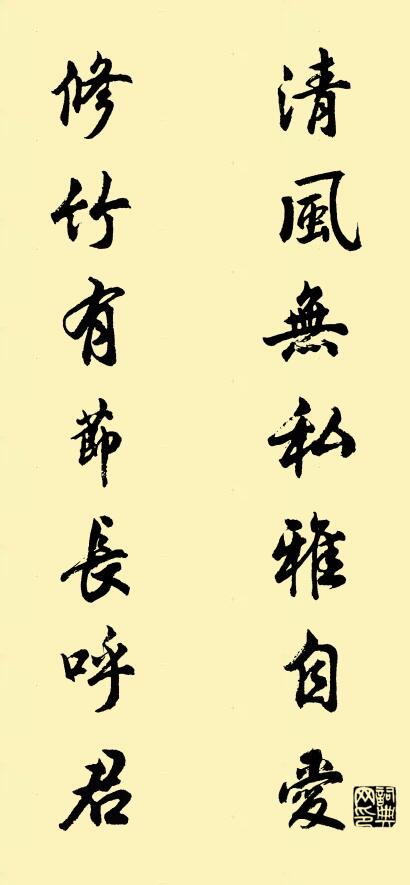 清風無私雅自愛
修竹有節長呼君
詞典网印